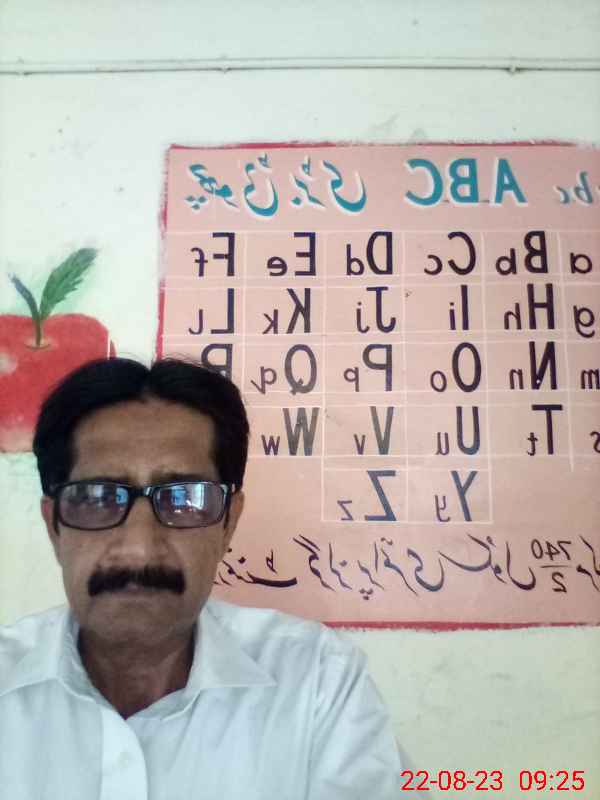 چھوٹی بڑی ABC bc
a Bb Cc Dd Ee Ff
g Hh Ii Jj Kk Ll
m Nn Oo Pp Qq R
s Tt Uu Vv Ww
Yy Zz
گرلز پرائمری سکول 740/2
22-08-23 09:25